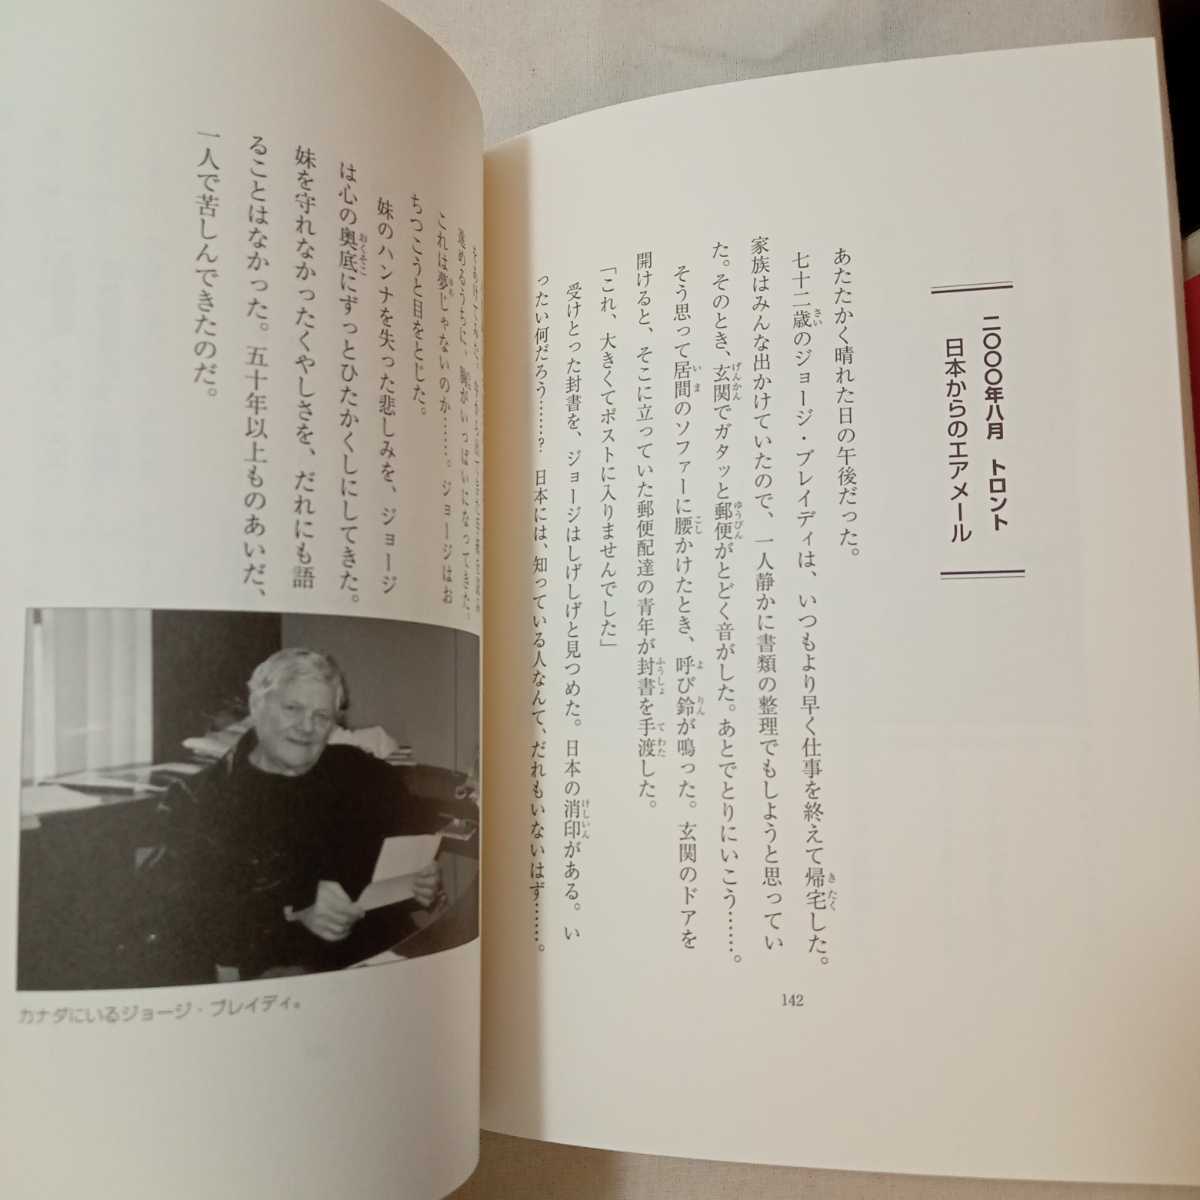 二〇〇〇年八月　トロント
日本からのエアメール
あたたかく晴れた日の午後だった。
七十二歳のジョージ・ブレイディは、いつもより早く仕事を終えて帰宅した。
家族はみんな出かけていたので、一人静かに書類の整理でもしようと思ってい
た。そのとき、玄関でガタッと郵便がとどく音がした。あとでとりにいこう……。
そう思って居間のソファーに腰かけたとき、呼び鈴が鳴った。玄関のドアを
開けると、そこに立っていた郵便配達の青年が封書を手渡した。
「これ、大きくてポストに入りませんでした」
受けとった封書を、ジョージはしげしげと見つめた。日本の消印がある。い
ったい何だろう……？　日本には、知っている人なんて、だれもいないはず……。
142
進めるうちに、胸がいっぱいになってきた。
これは夢じゃないのか……。ジョージはお
ちつこうと目をとじた。
妹のハンナを失った悲しみを、ジョージ
は心の奥底にずっとひたかくしにしてきた。
妹を守れなかったくやしさを、だれにも語
ることはなかった。五十年以上ものあいだ、
一人で苦しんできたのだ。
カナダにいるジョージ・ブレイディ。